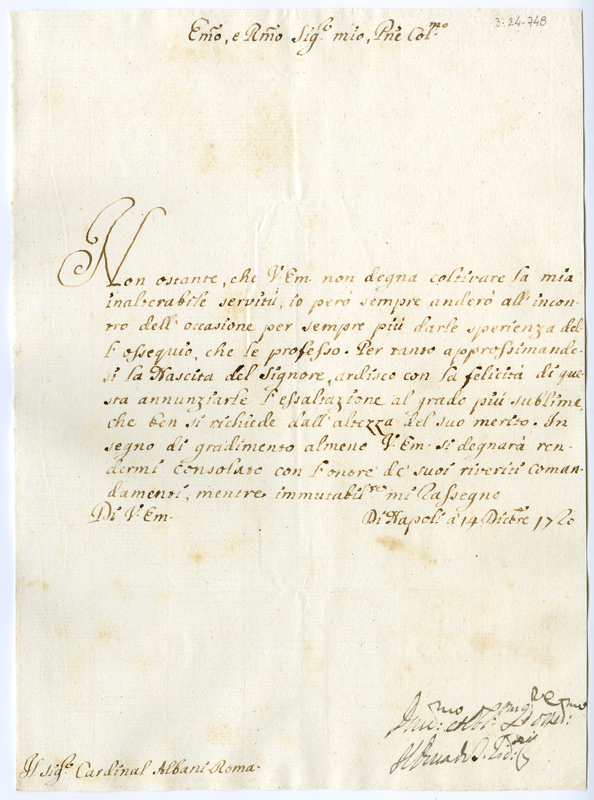 3-24-748
Emo, e Rmo Sigr. mio, Pne Colmo
Non ostante, che V. Em. non degna coltivare la mia
inalterabile servitù, io però sempre anderò all'incon-
tro dell'occasione per sempre più darle sperienza del-
l'ossequio, che le professo. Per tanto approssimando-
si la Nascita del Signore, ardisco con la felicità di que-
sta annunziarle l'essaltazione al grado più sublime,
che ben si richiede dall'altezza del suo merito. In
segno di gradimento almeno V. Em. si degnarà ren-
dermi consolato con l'onore de suoi riveriti coman-
damenti, mentre immutabilte mi rassegno
Di V. Em.
Di Napoli à 14 Dicbre 1720
Il Sigr. Cardinal Albani Roma.